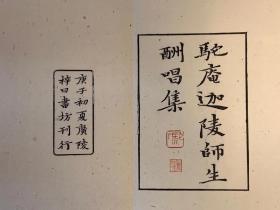 駝庵迦陵師生
酬唱集
庚子初夏廣陵
梓曰書坊刊行